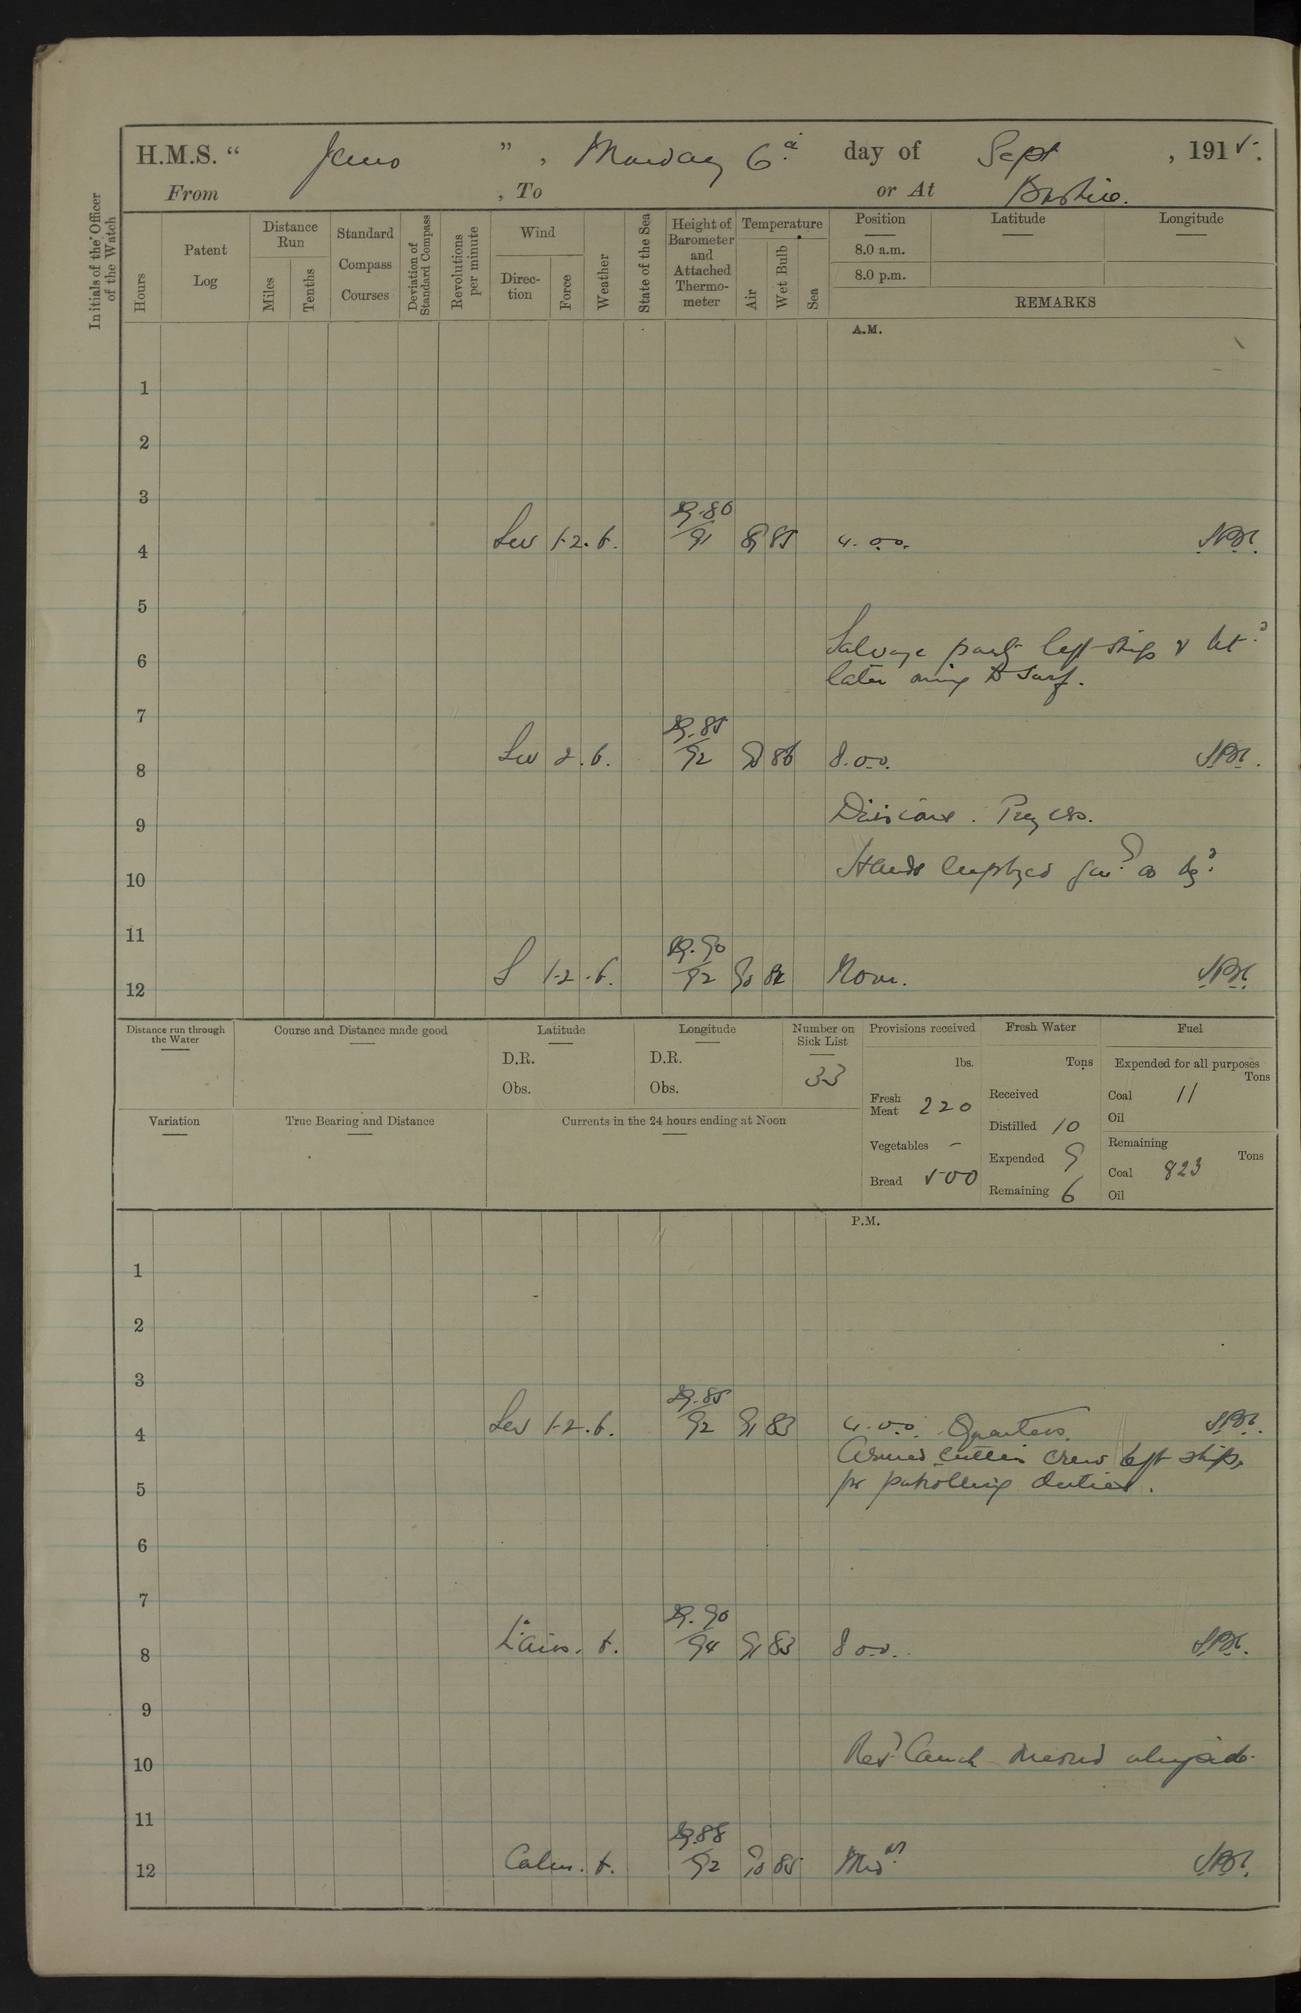 H.M.S. “ Juno ” , Monday 6th day of Sept , 1915.
From , To or At Bushire.
Initials of the Officer of the Watch
Hours
Patent Log
Distance Run
Miles
Tenths
Standard Compass Courses
Deviation of Standard Compass
Revolutions per minute
Wind
Direction
Force
Weather
State of the Sea
Height of Barometer and Attached Thermometer
Temperature
Air
Wet Bulb
Sea
Position Latitude Longitude
8.0 a.m.
8.0 p.m.
REMARKS
A.M.
1
2
3
4 SW 1-2 . b. 29.80/91 89 85 4.00.
5
6 Salvage party left ship & retd
later owing to surf.
7
8 SW 2 . b. 29.85/92 90 86 8.00.
9 Divisions . Prayers.
10 Hands employed genl as reqd
11
12 S 1-2 . b. 29.90/92 90 Noon.
Distance run through the Water
Course and Distance made good
Latitude
D.R.
Obs.
Longitude
D.R.
Obs.
Number on Sick List
33
Provisions received
lbs.
Fresh Meat 220
Vegetables -
Bread 500
Fresh Water
Tons
Received
Distilled 10
Expended 9
Remaining 6
Fuel
Expended for all purposes
Tons
Coal 11
Oil
Remaining
Tons
Coal 823
Oil
Variation
True Bearing and Distance
Currents in the 24 hours ending at Noon
P.M.
1
2
3
4 SW 1-2 . b. 29.85/92 91 83 4.00. Quarters.
Armed cutters crew left ship
for patrolling duties.
5
6
7
8 Lt airs. b. 29.90/94 91 83 8.00.
9
10 Launch moored alongside.
11
12 Calm. b. 29.88/92 90 85 Midt